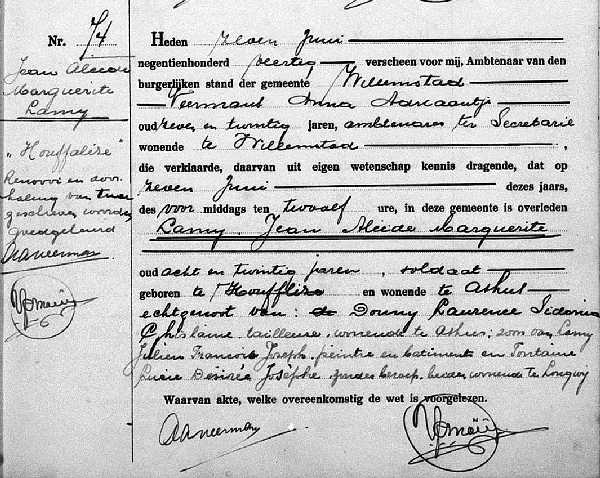 Nr. 74
Jean Alcide
Marguerite
Lamy
"Houffalize"
Renvooi en door-
haling van twee
geschreven woorden
goedgekeurd
Heden zeven Juni
negentienhonderd veertig verscheen voor mij, Ambtenaar van den
burgerlijken stand der gemeente Willemstad
Vermaas Anna Adriaantje
oud zeven en twintig jaren, ambtenares ter Secretarie
wonende te Willemstad,
die verklaarde, daarvan uit eigen wetenschap kennis dragende, dat op
zeven Juni dezes jaars,
des voor middags ten twaalf ure, in deze gemeente is overleden
Lamy Jean Alcide Marguerite
oud acht en twintig jaren, soldaat
geboren te Houfflize en wonende te Athus
echtgenoot van: de Donny Laurence Sidonie
Ghislaine, tailleuse, wonende te Athus; zoon van Lamy
Julien François Joseph, peintre en batiments en Fontaine
Lucie Désirée Josèphe zonder beroep, beiden wonende te Longwy
Waarvan akte, welke overeenkomstig de wet is voorgelezen.